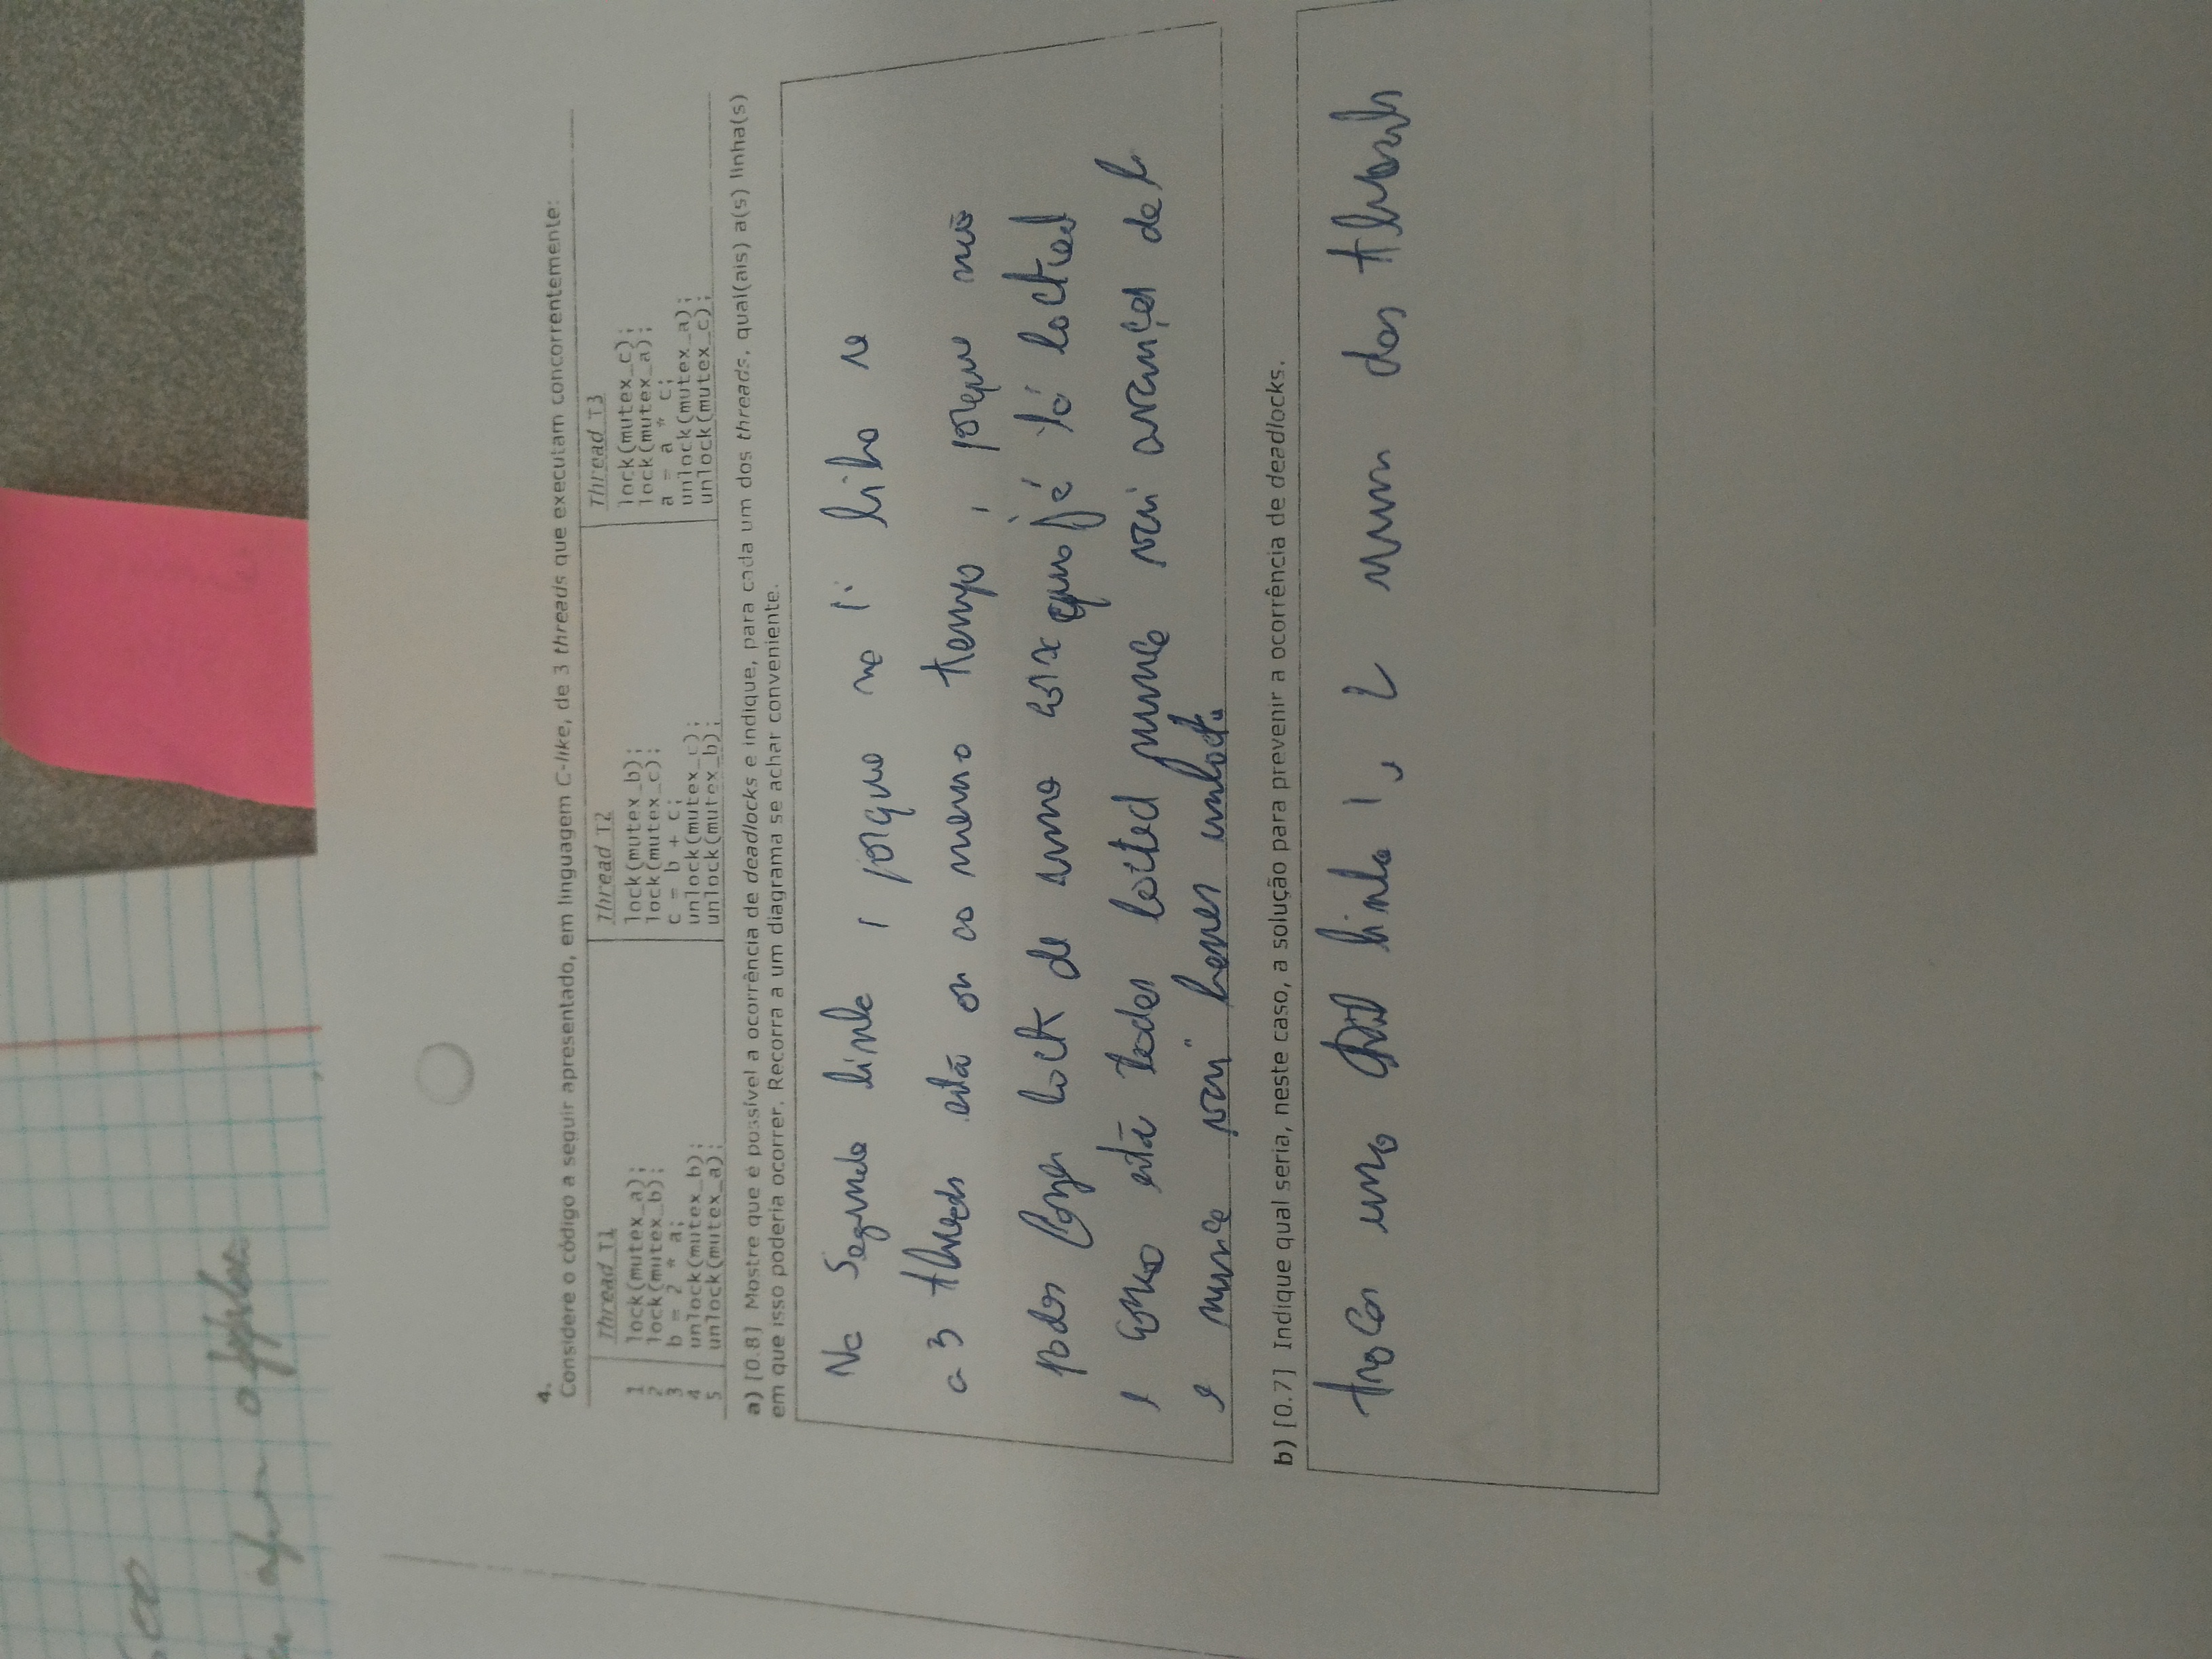 4.
Considere o código a seguir apresentado, em linguagem C-like, de 3 threads que executam concorrentemente:
Thread T1 Thread T2 Thread T3
1 lock(mutex_a); lock(mutex_b); lock(mutex_c);
2 lock(mutex_b); lock(mutex_c); lock(mutex_a);
3 b = 2 * a; c = b + c; a = a * c;
4 unlock(mutex_b); unlock(mutex_c); unlock(mutex_a);
5 unlock(mutex_a); unlock(mutex_b); unlock(mutex_c);
a) [0.8] Mostre que é possível a ocorrência de deadlocks e indique, para cada um dos threads, qual(ais) a(s) linha(s)
em que isso poderia ocorrer. Recorra a um diagrama se achar conveniente.
Na Segunda linha, porque na 1ª linha se
a 3 threads estão on ao mesmo tempo, porque não
podes fazer lock de uma coisa que já tá locked
e como está todos locked nunca vai avançar dali
e nunca vai haver unlock
b) [0.7] Indique qual seria, neste caso, a solução para prevenir a ocorrência de deadlocks.
trocar uma linha 1, 2 num dos threads